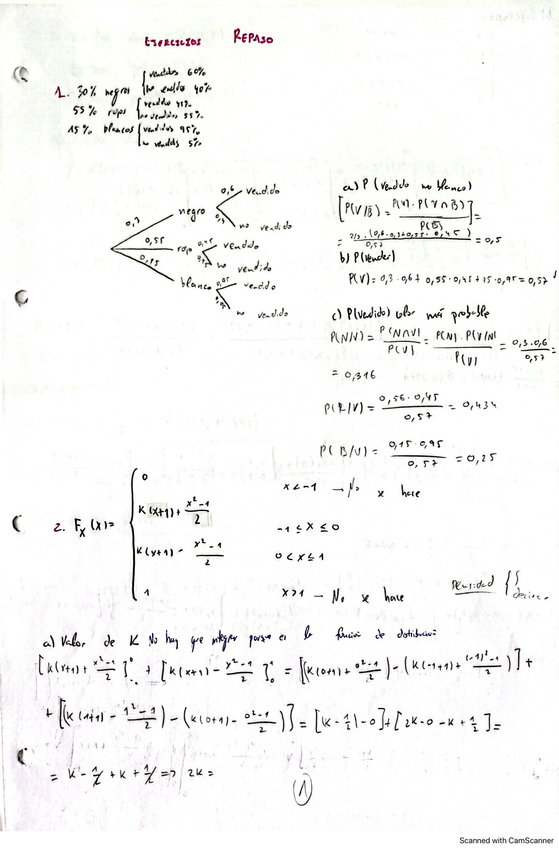 EJERCICIOS REPASO
1. 30% negros { vendidos 60%
no vendidos 40%
55% rojos { vendidos 45%
no vendidos 55%
15% blancos { vendidos 95%
no vendidos 5%
0,3 negro 0,6 vendido
0,4 no vendido
0,55 rojo 0,45 vendido
no vendido
0,15 blanco vendido
no vendido
a) P (vendido no blanco)
[P(V/B̄) = P(V)·P(V∩B̄) / P(B̄)] =
= 0,5
b) P(Vender)
P(V) = 0,3·0,6 + 0,55·0,45 + 15·0,95 = 0,57
c) P(vendido) color más probable
P(N/V) = P(N∩V) / P(V) = P(N)·P(V/N) / P(V) = 0,3·0,6 / 0,57 =
= 0,316
P(R/V) = 0,56·0,45 / 0,57 = 0,434
P(B/V) = 0,15·0,95 / 0,57 = 0,25
2. Fx(x) = {
0 x<-1 → No se hace
K(x+1) + x²-1 / 2 -1≤x≤0
K(x+1) - x²-1 / 2 0<x≤1
1 x>1 → No se hace
Densidad { ∫
derivar
a) Valor de K No hay que integrar porque es la función de distribución
[K(x+1) + x²-1 / 2]⁰₋₁ + [K(x+1) - x²-1 / 2]¹₀ = [(K(0+1) + 0²-1 / 2) - (K(-1+1) + (-1)²-1 / 2)] +
+ [(K(1+1) - 1²-1 / 2) - (K(0+1) - 0²-1 / 2)] = [(K - 1/2) - 0] + [2K - 0 - K + 1/2] =
= K - 1/2 + K + 1/2 => 2K =
1
Scanned with CamScanner